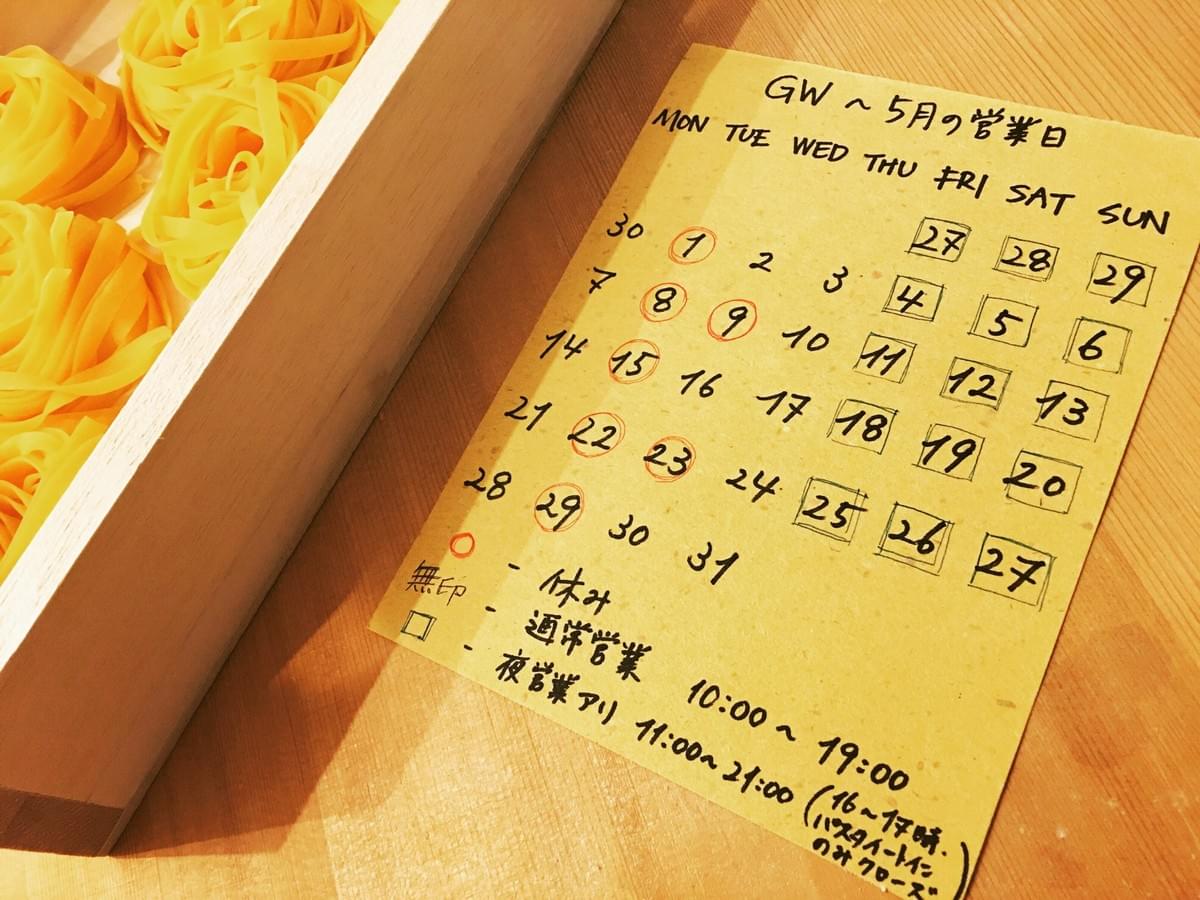 GW〜5月の営業日
MON TUE WED THU FRI SAT SUN
27 28 29
30 1 2 3 4 5 6
7 8 9 10 11 12 13
14 15 16 17 18 19 20
21 22 23 24 25 26 27
28 29 30 31
○ - 休み
無印 - 通常営業 10:00〜19:00
□ - 夜営業アリ 11:00〜21:00 (16〜17時.
パスタイートイン
のみクローズ)